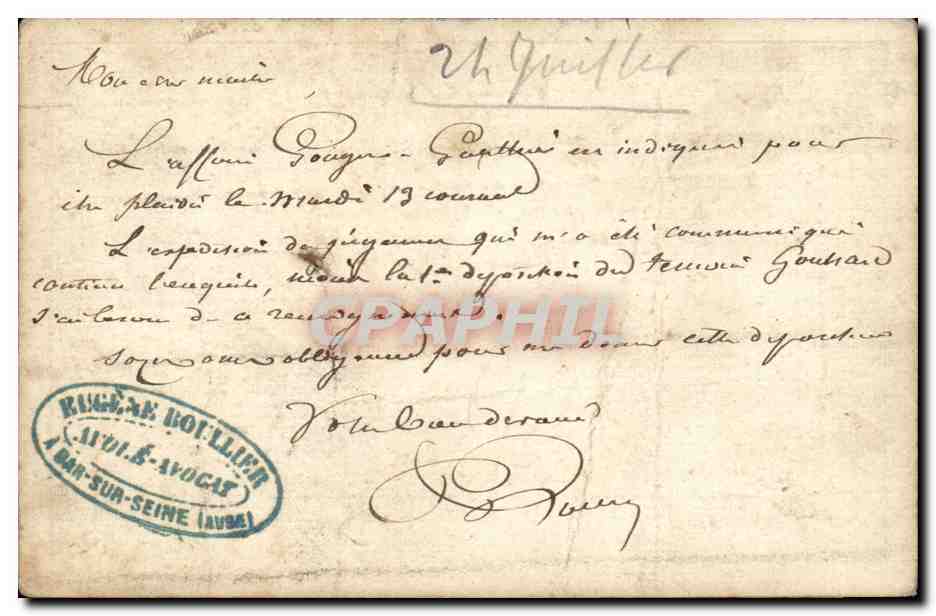 24 Juillet
Mon cher maître
L'affaire Gouthier est indiquée pour
être plaidée le Mardi 13 courant
L'expédition de jugement qui m'a été communiquée
contient l'enquête, moins la 1re déposition du témoin Goussard
J'ai besoin de ce renseignement.
Soyez assez obligeant pour me donner cette déposition
Votre bien dévoué
EUGÈNE BOULLIER
AVOUÉ-AVOCAT
A BAR-SUR-SEINE (AUBE)
CPAPHIL